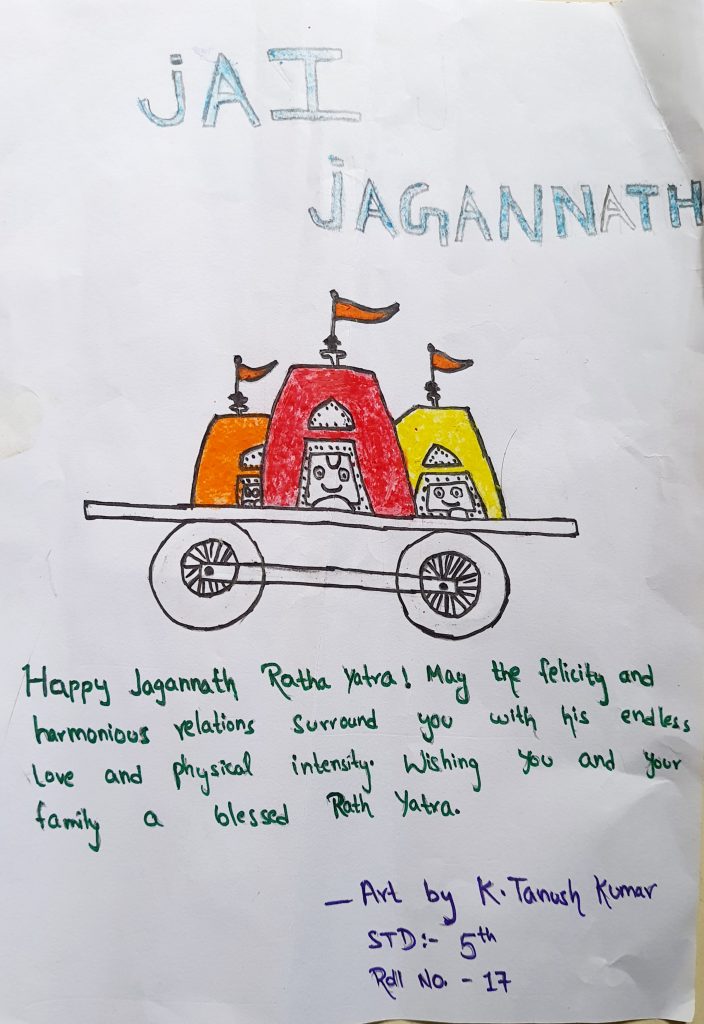 JAI
JAGANNATH
Happy Jagannath Ratha Yatra! May the felicity and
harmonious relations surround you with his endless
Love and physical intensity. Wishing you and your
family a blessed Rath Yatra.
— Art by K. Tanush Kumar
STD:- 5th
Roll No. - 17